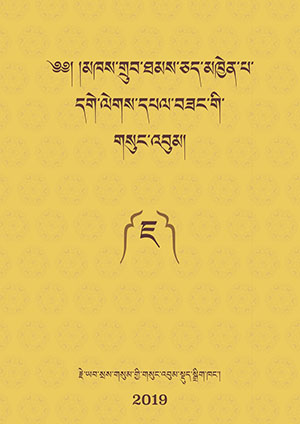 ༄༅། །མཁས་གྲུབ་ཐམས་ཅད་མཁྱེན་པ་
དགེ་ལེགས་དཔལ་བཟང་གི་
གསུང་འབུམ།
ཇ
རྗེ་ཡབ་སྲས་གསུམ་གྱི་གསུང་འབུམ་སྡུད་སྒྲིག་ཁང་།
2019